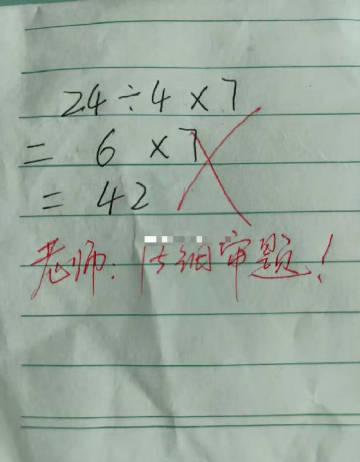 24÷4×7
= 6 ×7
= 42
老师: 仔细审题!